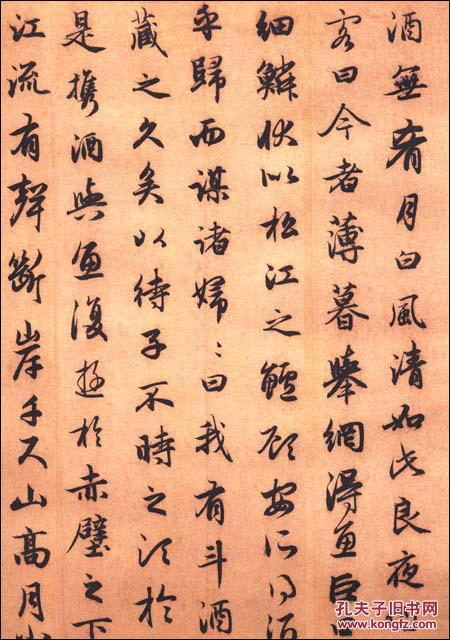 酒無肴月白風清如此良夜
客曰今者薄暮舉網得魚巨口
細鱗狀似松江之鱸顧安所得酒
乎歸而謀諸婦〻曰我有斗酒
藏之久矣以待子不時之須於
是携酒與魚復遊於赤壁之下
江流有聲斷岸千尺山高月小
孔夫子旧书网
www.kongfz.com